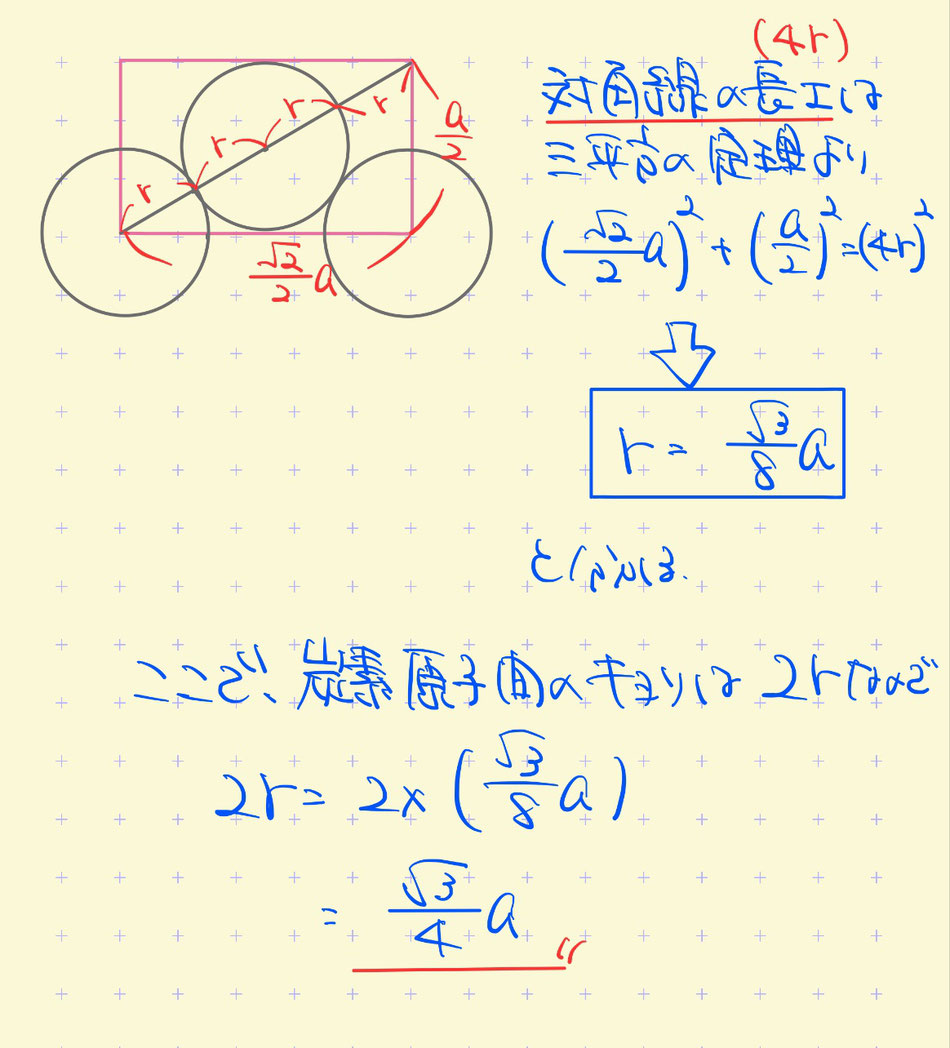 r r r r
a/2
√2/2 a
(4r)
対角線の長さは
三平方の定理より
(√2/2 a)² + (a/2)² = (4r)²
r = √3/8 a
ここで、炭素原子間のキョリは 2rなので
2r = 2× (√3/8 a)
= √3/4 a 〃